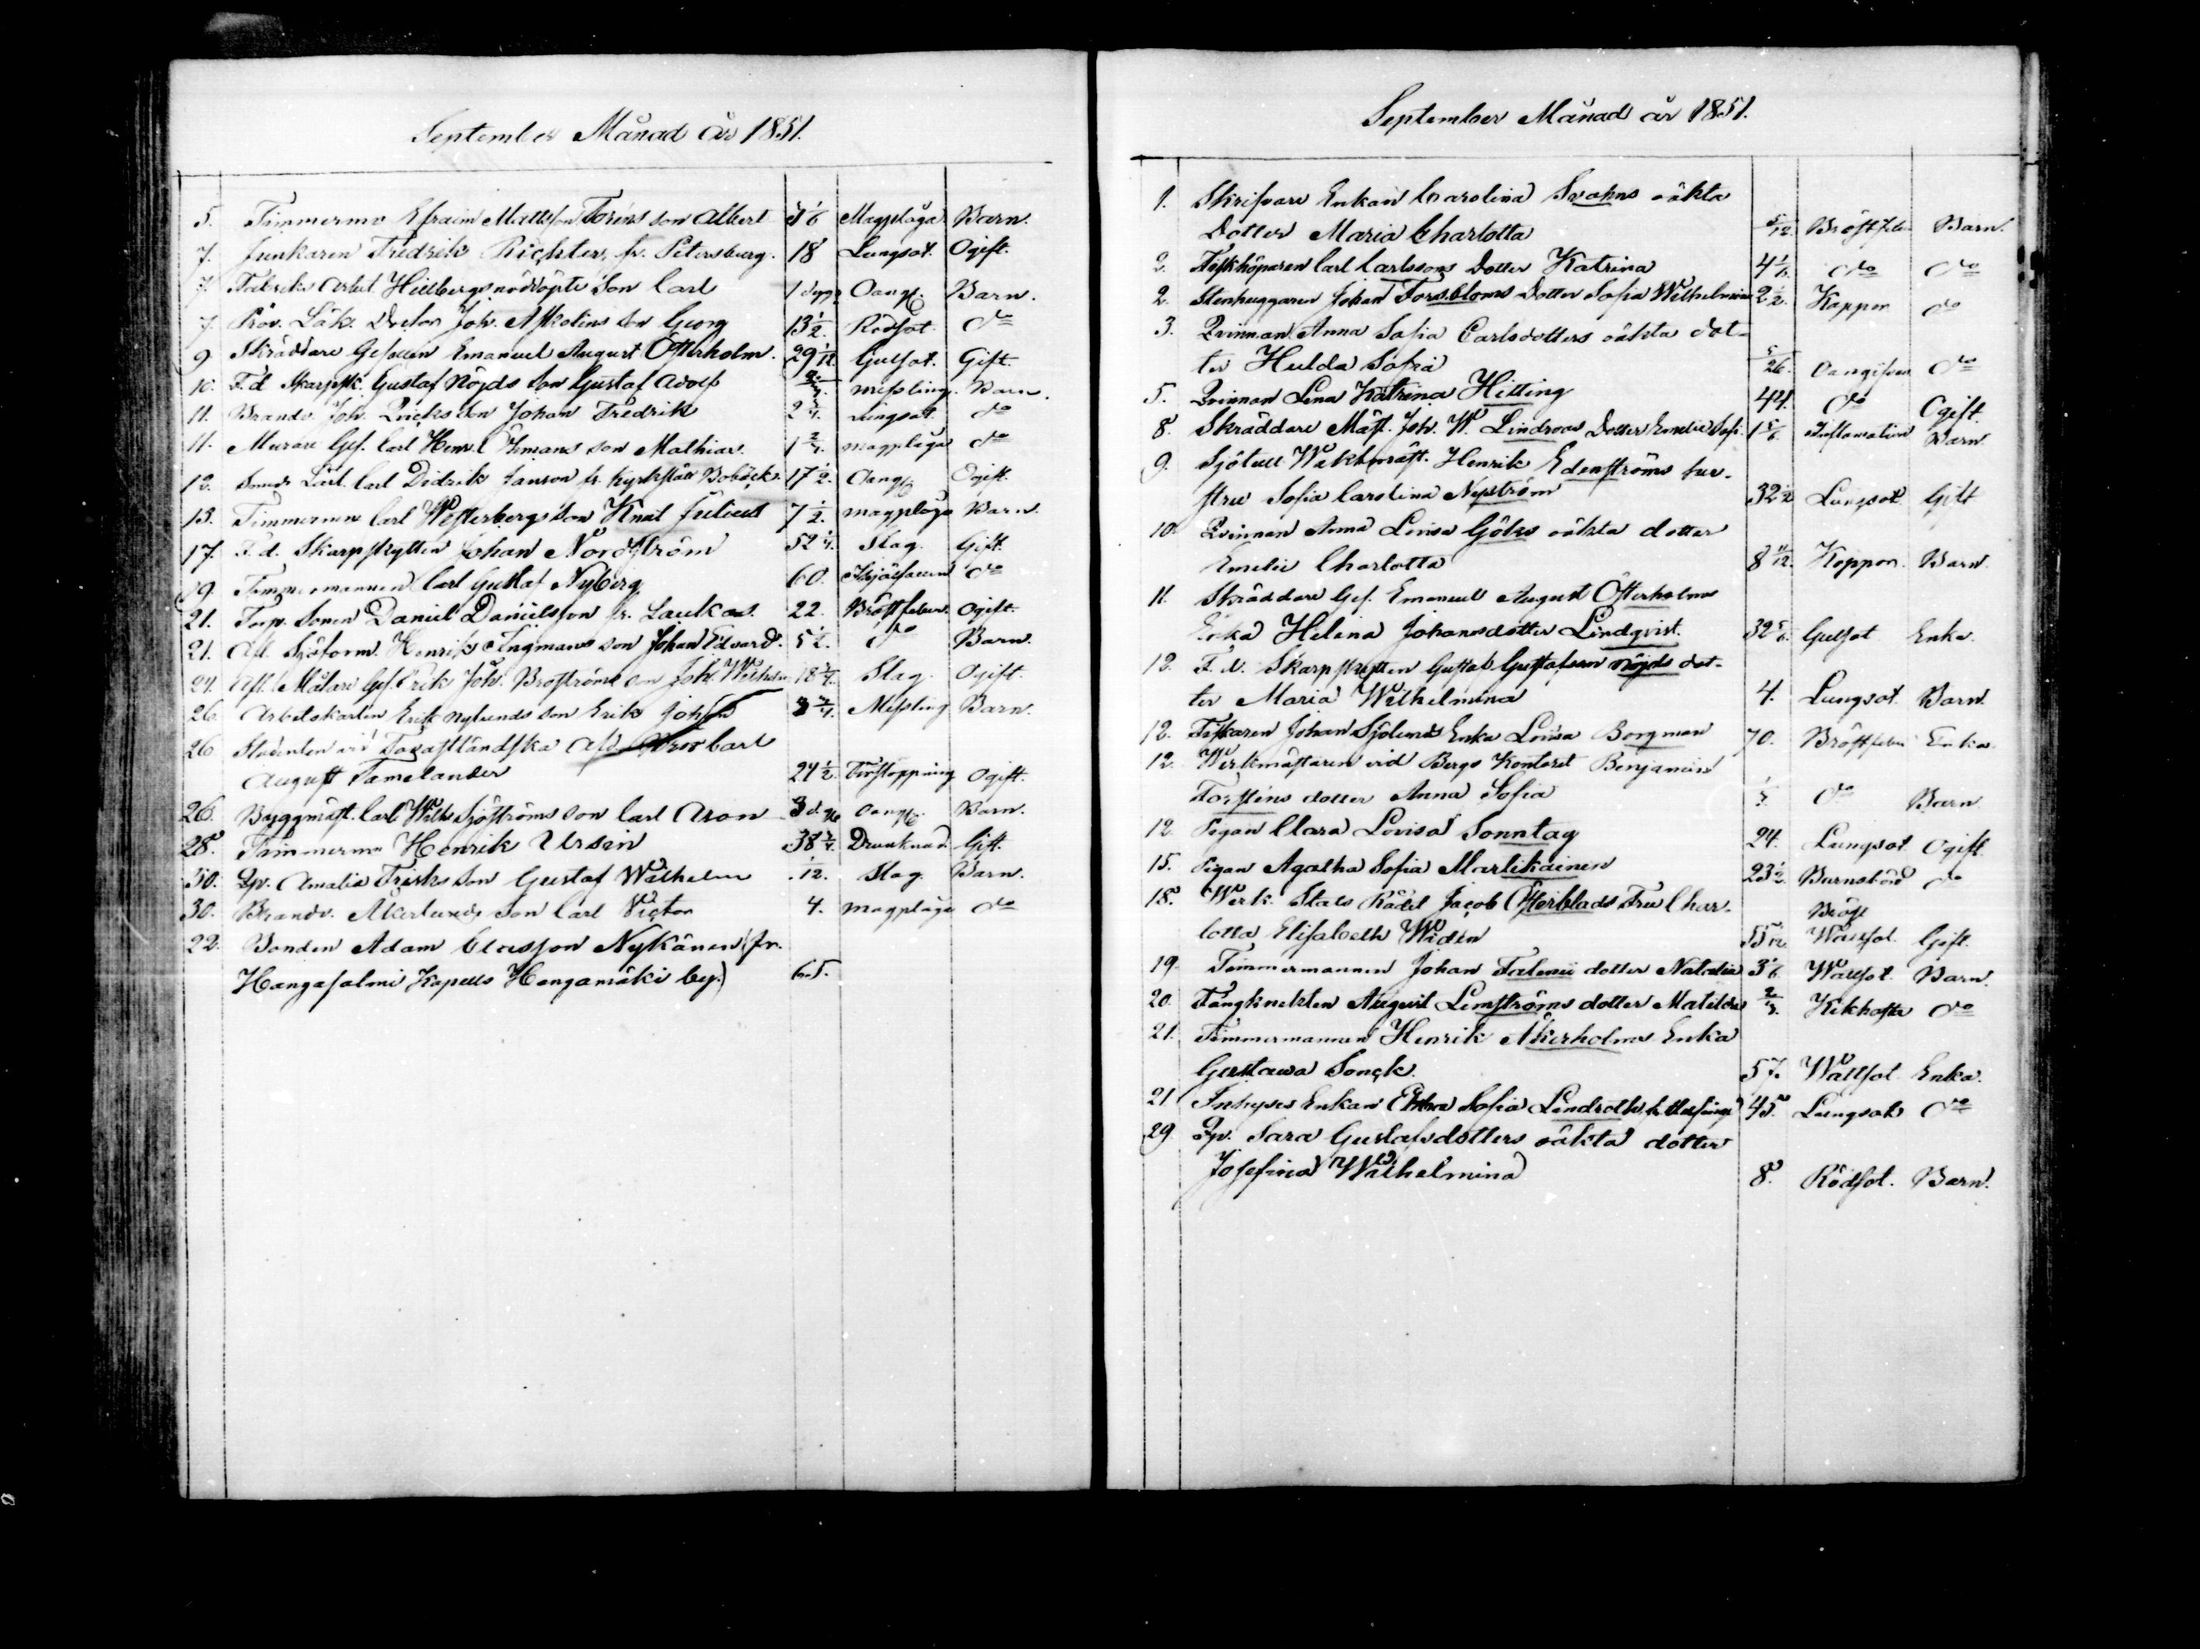 September Månad år 1851.
5. Timmerm. Efraim Mattsson Torens son Albert 3 1/6 Magplåga Barn.
7. Junkaren Fredrik Richter, fr. Petersburg. 18 Lungsot. Ogift.
7. Fabriks Arbet. Hillbergs nödröpte son Carl 1 dygn Oang. Barn.
7. Prov. Läk. Doctor Joh. Askolins son Georg 13 1/2 Rödsot. do
9. Skräddare Gesellen Emanuel August Österholm. 29 1/12 Gulsot. Gift.
10. F.d. Skarpsk. Gustaf Nöjds son Gustaf Adolf Messling. Barn.
11. Brandv. Joh. son Johan Fredrik 2 3/4 Lungsot. do
11. Murare Ges. Carl Henr. Öhmans son Mathias. 1 3/4 magplåga do
12. Lärl. Carl Didrik Janson fr. Kyrkslätt Bobäck. 17 1/2. Oang. Ogift.
13. Timmerman Carl Westerbergs son Knut Julius 7 1/2. magplåga Barn.
17. F.d. Skarpskytten Johan Nordström 52 1/4. Slag. Gift.
19. Timmermannen Carl Gustaf Nyberg 60. do
21. Torp. Sonen Daniel Danielsson fr. Laukas. 22. Bröstfeber. Ogift.
21. Afl. Sjöform. Henriks Ingmans son Johan Edvard. 5 1/2. do Barn.
24. Afl. Målare Ges. Erik Joh. Broströms son Joh. Wilhelm 18 3/4. Slag. Ogift.
26. Arbetskarlen Erik Nylunds son Erik Johan 3 3/4. Messling Barn.
26. Studenten vid Tavastländska Afd. Carl
August Tamelander 24 1/2. Förstoppning Ogift.
26. Byggmäst. Carl Wilh. Sjöströms son Carl Aron 3 d. Oang. Barn.
28. Timmerm. Henrik Ursin 38 3/4. Drunknad. Gift.
30. Qv. Amalia Frisks son Gustaf Wilhelm 1/12. Slag. Barn.
30. Brandv. Åkerlunds son Carl Victor 4. magplåga do
22. Bonden Adam Classon Nykänen (fr.
Hangasalmi Kapells Hangamäki by.) 65.
September Månad år 1851.
1. Skrifvare Enkan Carolina Svahns oäkta
Dotter Maria Charlotta 5/12. Bröstfeber Barn.
2. Fiskköparen Carl Carlssons Dotter Katrina 4 1/6. do do
2. Stenhuggaren Johan Forsbloms Dotter Sofia Wilhelmina 2 1/2. Koppor do
3. Qvinnan Anna Sofia Carlsdotters oäkta dot-
ter Hulda Sofia 5/26. Oangifven do
5. Qvinnan Lena Katrina Hitting 44. do Ogift.
8. Skräddare Mäst. Joh. W. Lindroos Dotter Emelie Sofi. 1 5/6. Inflamation Barn
9. Sjötull Waktmäst. Henrik Edenströms hu-
stru Sofia Carolina Nyström 32 1/2 Lungsot Gift
10. Qvinnan Anna Lovisa Götes oäkta dotter
Emelie Charlotta 8 11/12. Koppor. Barn.
11. Skräddare Ges. Emanuel August Österholms
Enka Helena Johansdotter Lindqvist. 32 5/6. Gulsot Enka.
12. F. d. Skarpskytten Gustaf Gustafsson Nöjds dot-
ter Maria Wilhelmina 4. Lungsot Barn.
12. Fiskaren Johan Sjölunds Enka Lovisa Borgman 70. Bröstfeber Enka.
12. Werkmästaren vid Bergs Kontoret Benjamin
Forsténs dotter Anna Sofia do Barn
12. Pigan Clara Lovisa Sonntag 24. Lungsot Ogift
15. Pigan Agatha Sofia Martikainen 23 1/2. Barnsbörd do
18. Werk. Stats Rådet Jacob Österblads Fru Char-
lotta Elisabeth Widén Bröst Wattsot. Gift.
19. Timmermannen Johan dotter Natalia 3 1/6 Wattsot. Barn.
20. Fångknekten August Lemströms dotter Matilda Kikhosta do
21. Timmermannen Henrik Åkerholms Enka
Gustava Sonck. 57. Wattsot Enka.
21. Enkan Sofia Lindroth 45. Lungsot do
29. Qv. Sara Gustafsdotters oäkta dotter
Josefina Wilhelmina 8. Rödsot. Barn.